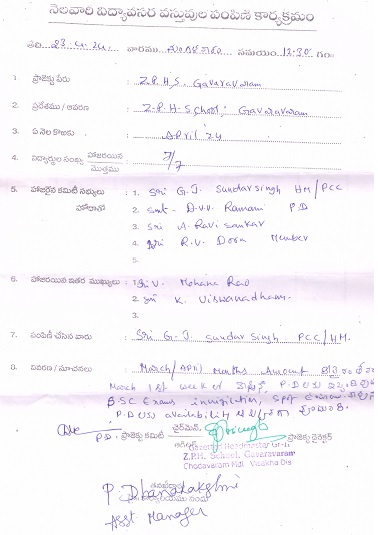 నెలవారి విద్యావసర వస్తువుల పంపిణీ కార్యక్రమం
తేది. 23.4.24. వారము మంగళవారం సమయం 12.30 గం॥
1. ప్రాజెక్టు పేరు : Z.P.H.S. Gavaravaram
2. ప్రదేశము / ఆవరణ : Z.P.H-School; Gavaravaram
3. ఏ నెల కొఱకు : April 24
4. విద్యార్ధుల సంఖ్య హాజరయిన / మొత్తము : 7/7
5. హాజరైన కమిటీ సభ్యులు : 1. Sri G.J. Sundar Singh HM/PCC
హోదాతో 2. Smt- D.V.V. Ramani P.D
3. Sri A. Ravi Sankar
4. Sri R.V. Dora Member
5.
6. హాజరయిన ఇతర ముఖ్యులు : 1. Sri V. Mohana Rao
2. Sri K. Viswanadham.
3.
7. పంపిణీ చేసిన వారు : Sri G-J Sundar Singh PCC/HM.
8. వివరణ / సూచనలు : March/April Months Amount
March 1st week లో P.D లకు
S.SC Exams invigilation, Spot
P.D లకు availability
P.D. ప్రాజెక్టు కమిటీ చైర్‌మెన్ ప్రాజెక్టు డైరెక్టర్
Gazetted Headmaster Gr-II
Z.P.H. School, Gavaravaram
Chodavaram Mdl. Visakha Dis
P. Dhanalakshmi
Asst. Manager